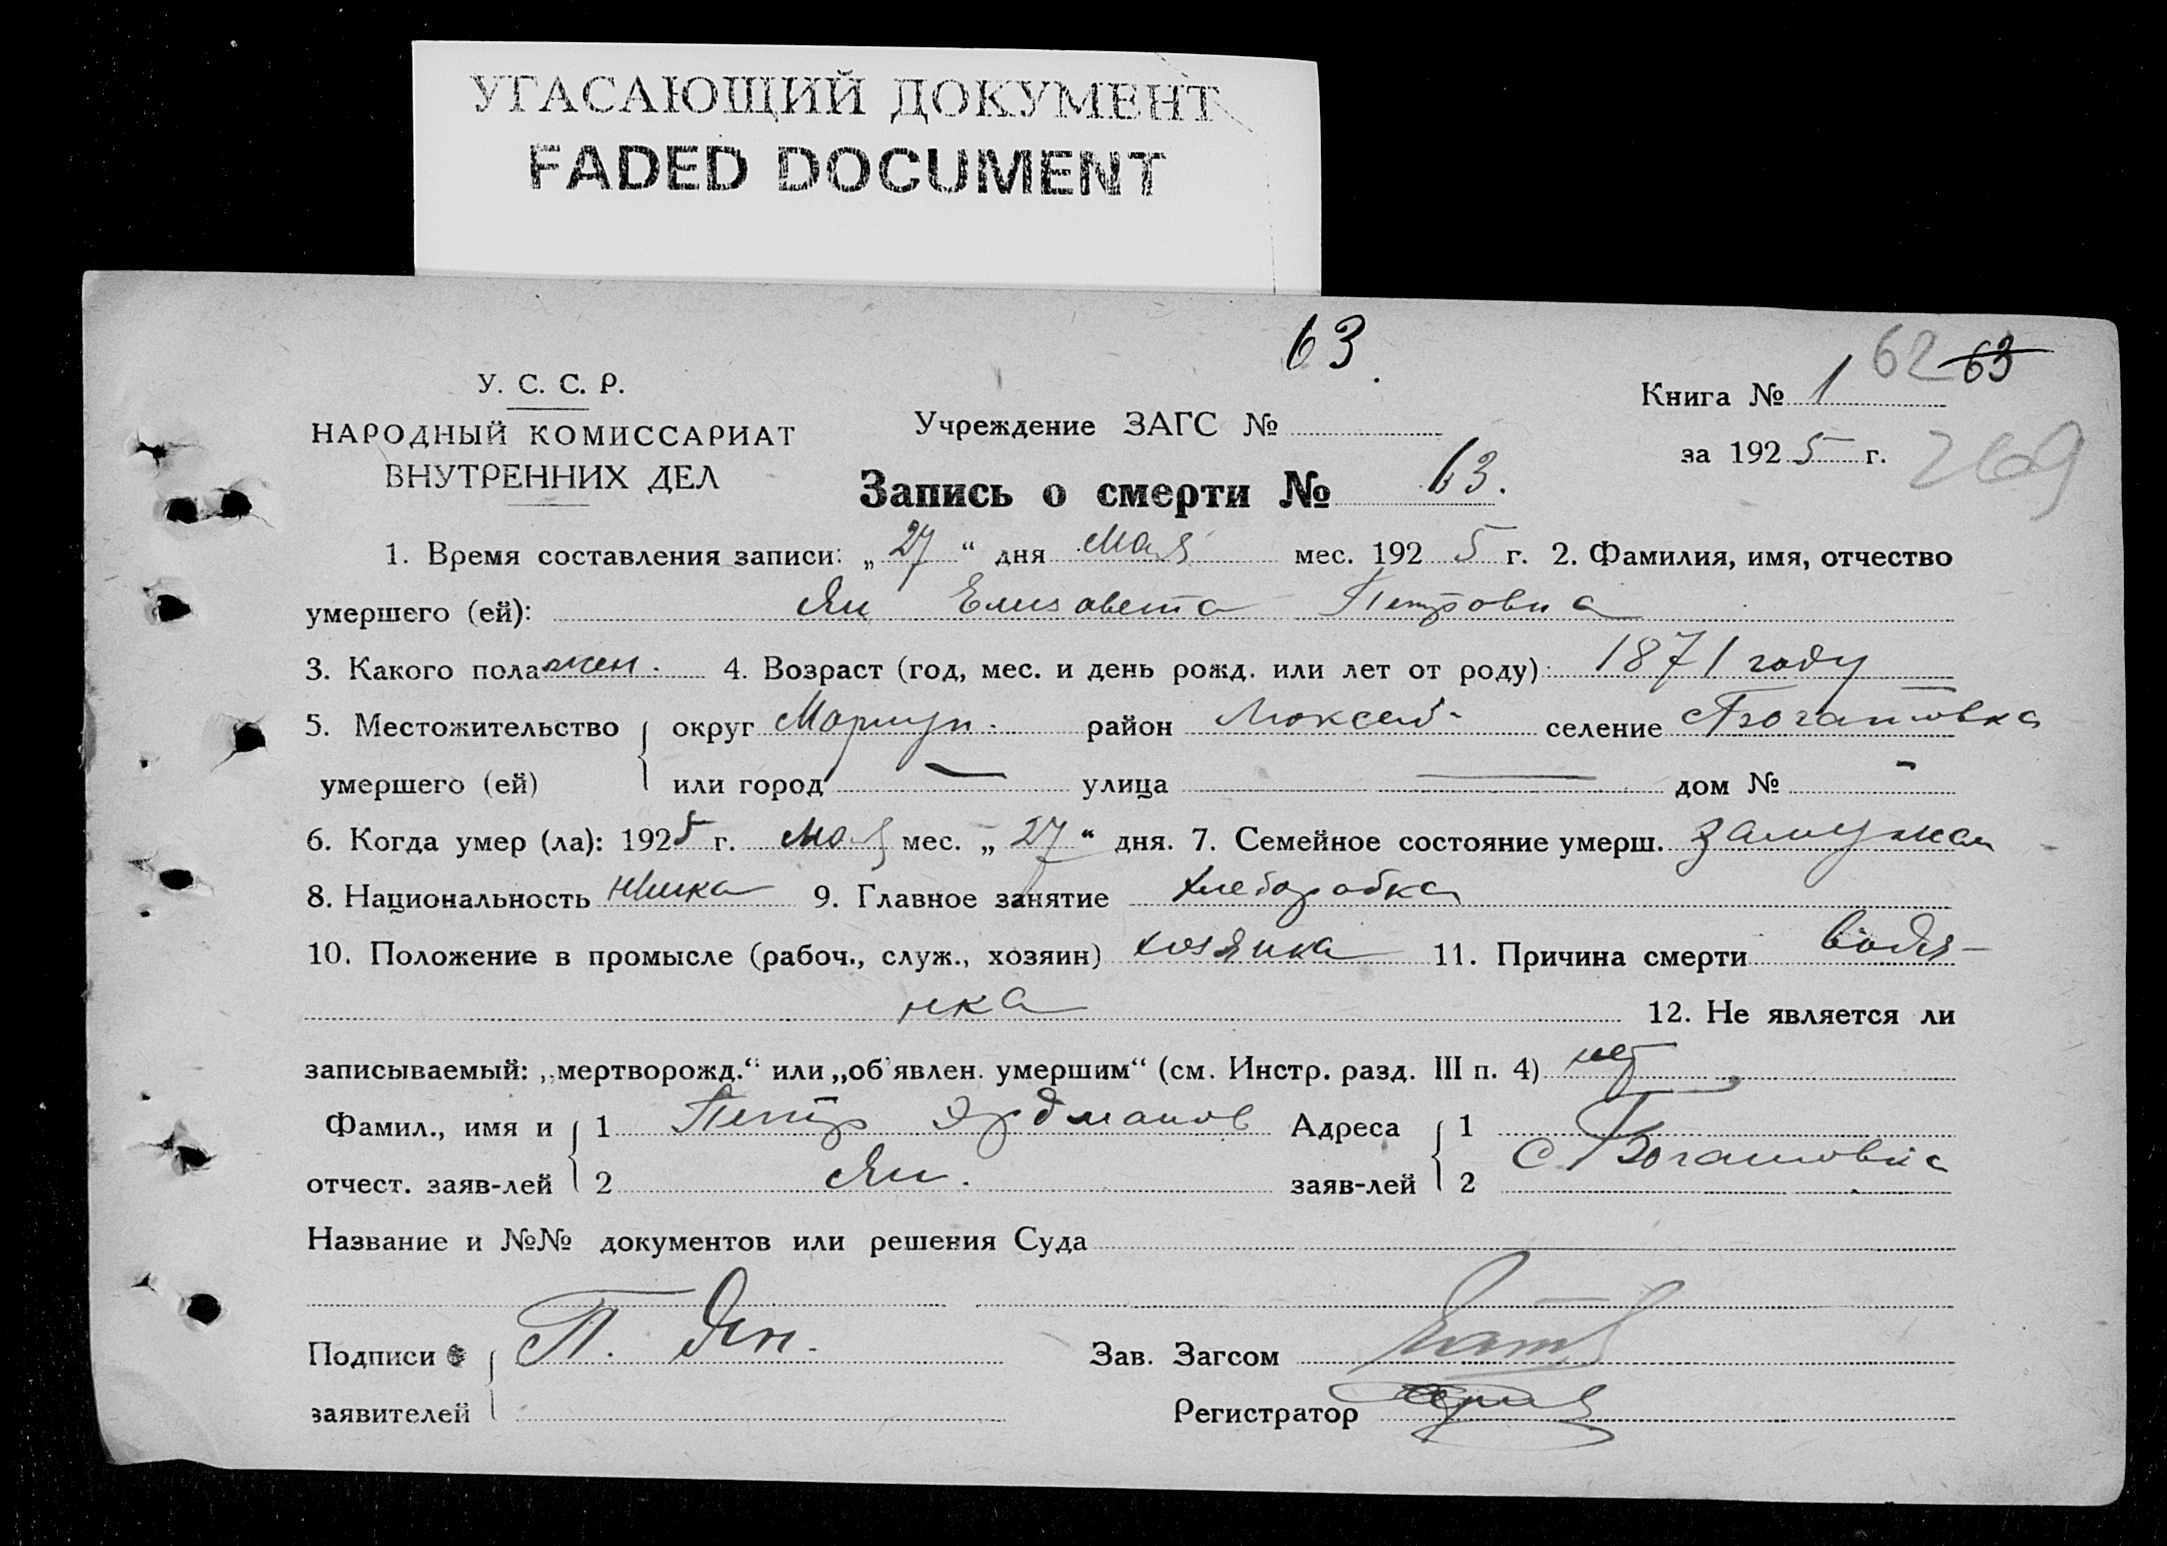 УГАСАЮЩИЙ ДОКУМЕНТ
FADED DOCUMENT
63.
62 63
У. С. С. Р.
Книга № 1
НАРОДНЫЙ КОМИССАРИАТ
ВНУТРЕННИХ ДЕЛ
Учреждение ЗАГС №
за 1925 г. 269
Запись о смерти № 63.
1. Время составления записи: „27“ дня мая мес. 1925 г. 2. Фамилия, имя, отчество
умершего (ей): Ян Елизавета Петровна
3. Какого пола жен. 4. Возраст (год, мес. и день рожд. или лет от роду): 1871 году
5. Местожительство округ Мариуп. район Люксемб- селение Богатовка
умершего (ей) или город — улица — дом № -
6. Когда умер (ла): 1925 г. мая мес. „27“ дня. 7. Семейное состояние умерш. замужем
8. Национальность немка 9. Главное занятие хлеборобка
10. Положение в промысле (рабоч., служ., хозяин) хозяйка 11. Причина смерти водя-
нка 12. Не является ли
записываемый: „мертворожд.“ или „об'явлен. умершим“ (см. Инстр. разд. III п. 4) нет
Фамил., имя и 1 Петр Эрдманов Адреса 1
отчест. заяв-лей 2 Ян. заяв-лей 2 С. Богатовка
Название и №№ документов или решения Суда
Подписи П. Ян. Зав. Загсом
заявителей Регистратор